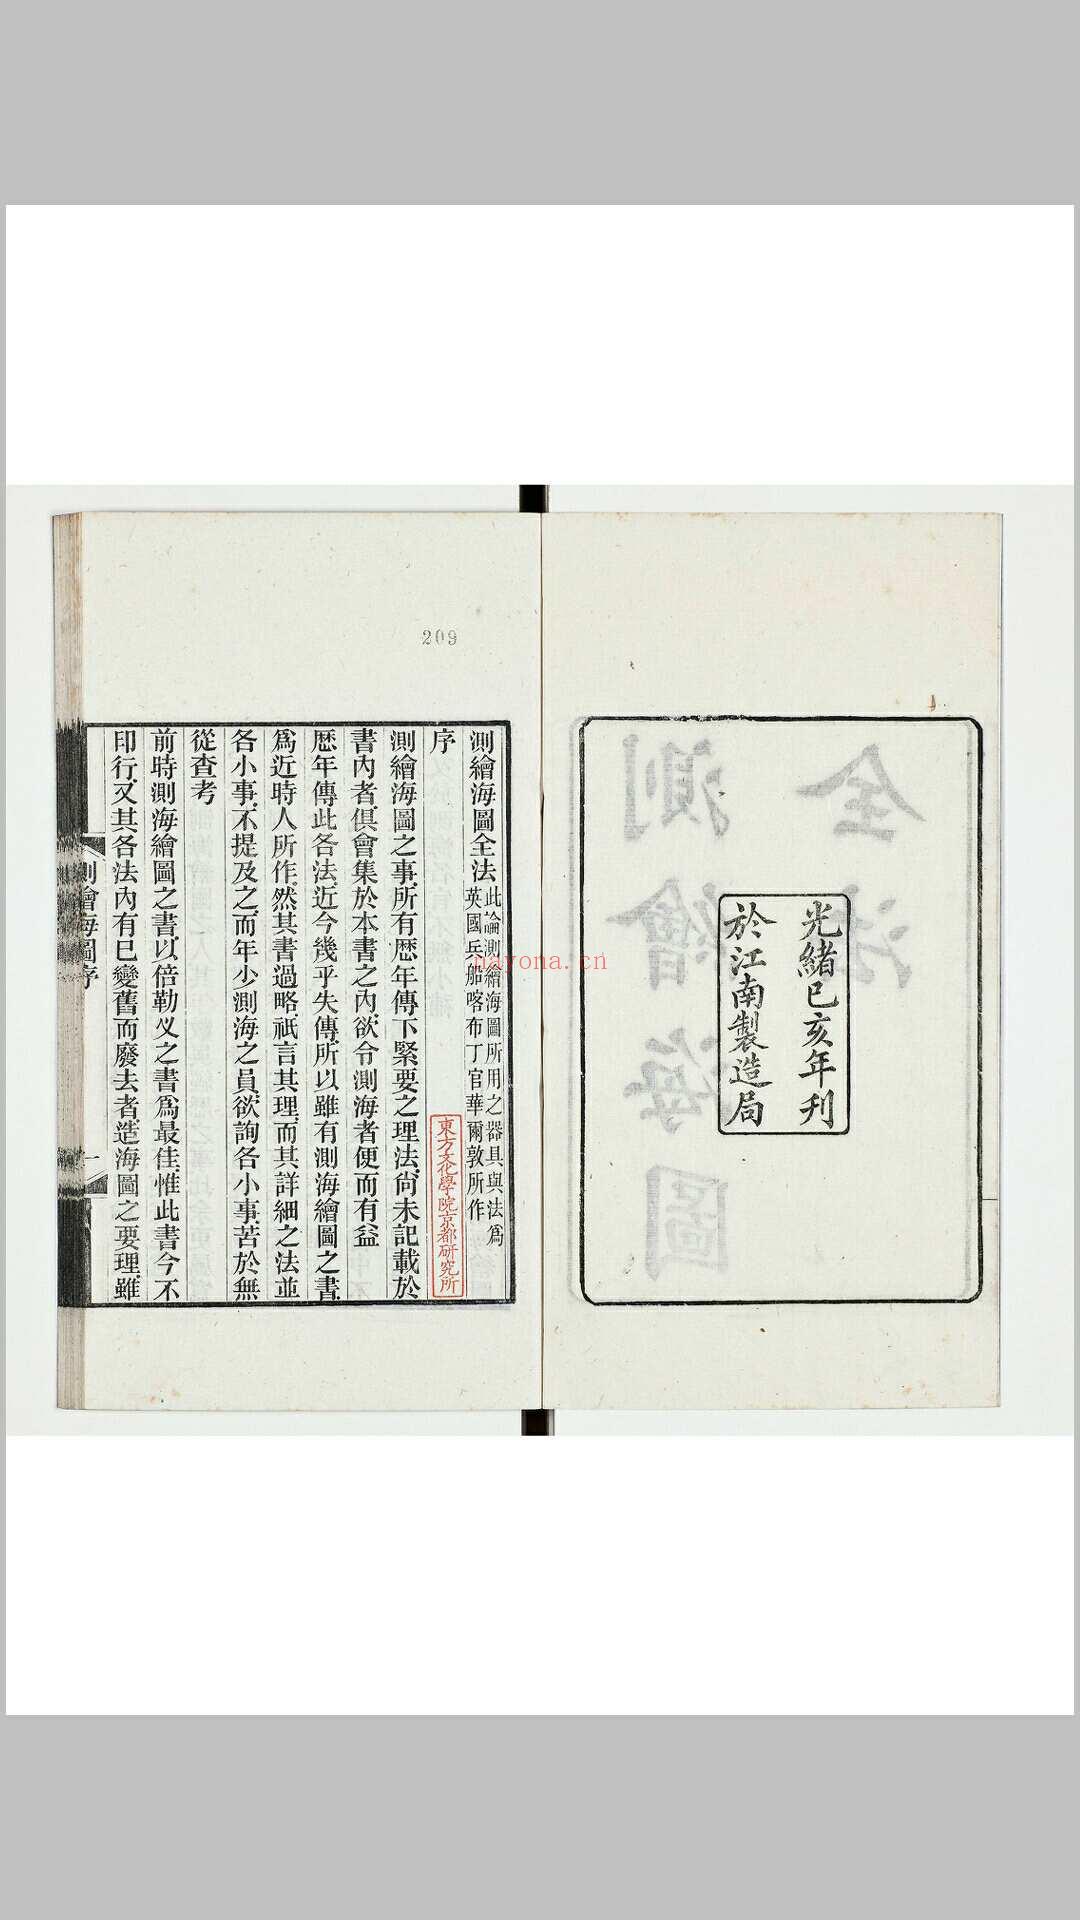 光緒已亥年刋
於江南製造局
209
測繪海圖全法此論測繪海圖所用之器具與法爲
英國兵船喀布丁官華爾敦所作
序
東方文化學院京都研究所
測繪海圖之事所有歴年傳下緊要之理法尙未記載於
書內者俱會集於本書之內欲令測海者便而有益
歴年傳此各法近今幾乎失傳所以雖有測海繪圖之書
爲近時人所作然其書過略祇言其理而其詳細之法並
各小事不提及之而年少測海之員欲詢各小事苦於無
從查考
前時測海繪圖之書以倍勒㕛之書爲最佳惟此書今不
印行又其各法內有已變舊而廢去者造海圖之要理雖
測繪海圖序
一
nayona.cn